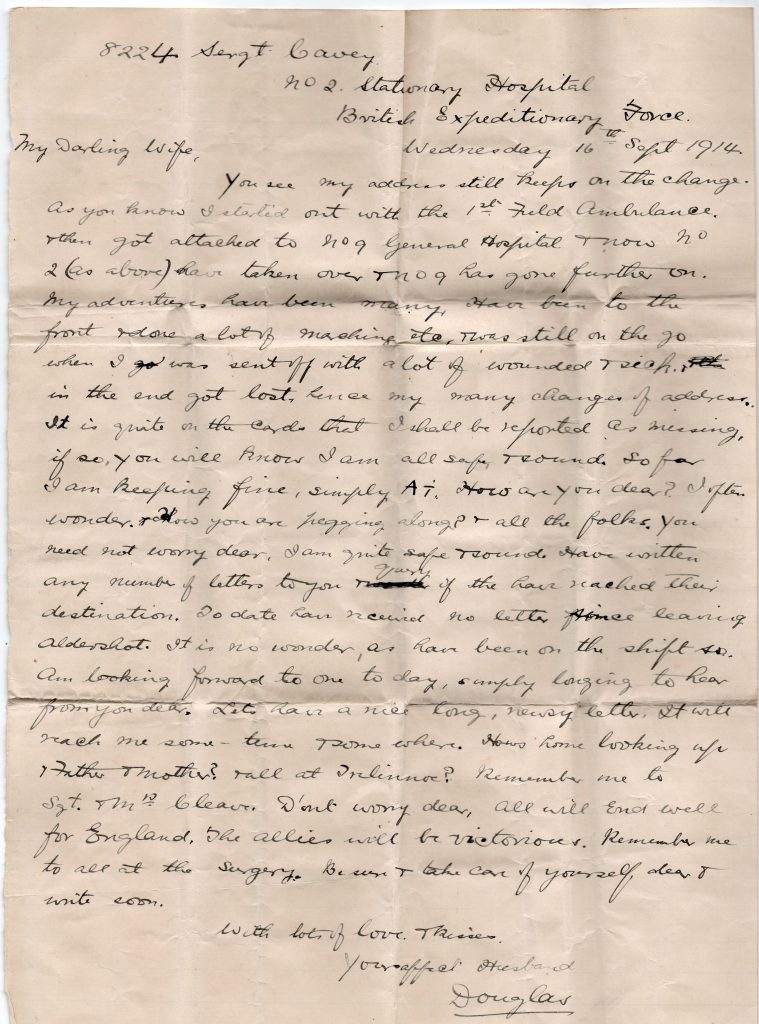 8224 Sergt. Cavey
No 2. Stationary Hospital
British Expeditionary Force.
My Darling Wife, Wednesday 16th Sept 1914
You see my address still keeps on the change.
As you know I started out with the 1st Field Ambulance.
& then got attached to No 9 General Hospital & now No
2 (as above) have taken over & No 9 has gone further on.
My adventures have been many, Have been to the
front & done a lot of marching etc, & was still on the go
when I go was sent off with a lot of wounded & sick,
in the end got lost, hence my many changes of address.
It is quite on the cards that I shall be reported as missing,
if so, you will know I am all safe & sound. So far
I am keeping fine, simply A1. How are you dear? I often
wonder. & How you are pegging along? & all the folks. You
need not worry dear, I am quite safe & sound. Have written
any number of letters to you query if the have reached their
destination. To date have received no letter since leaving
Aldershot. It is no wonder, as have been on the shift so.
Am looking forward to one to day, simply longing to hear
from you dear. Lets have a nice long, newsy letter. It will
reach me some-time & some where. Hows home looking up
& Father & Mother? & all at Trelinnoe? Remember me to
Sgt. & Mrs Cleave. D'ont worry dear, all will End well
for England. The allies will be victorious. Remember me
to all at the Surgery. Be sure & take care of yourself, dear &
write soon.
With lots of love. & kisses.
Your affect Husband
Douglas